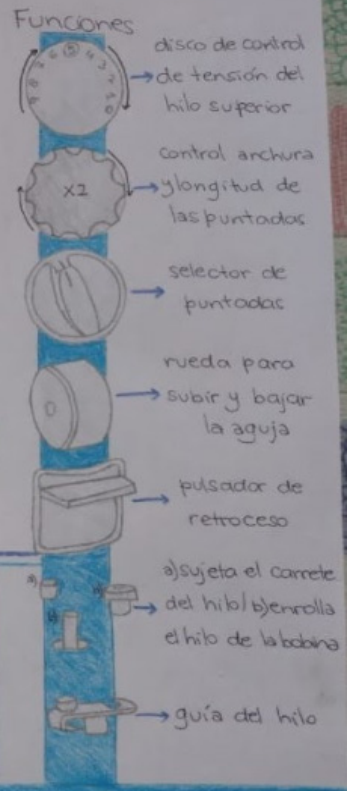 Funciones
disco de control
de tensión del
hilo superior
control anchura
y longitud de
las puntadas
X2
selector de
puntadas
rueda para
subir y bajar
la aguja
pulsador de
retroceso
a) sujeta el carrete
del hilo/b) enrolla
el hilo de la bobina
guía del hilo